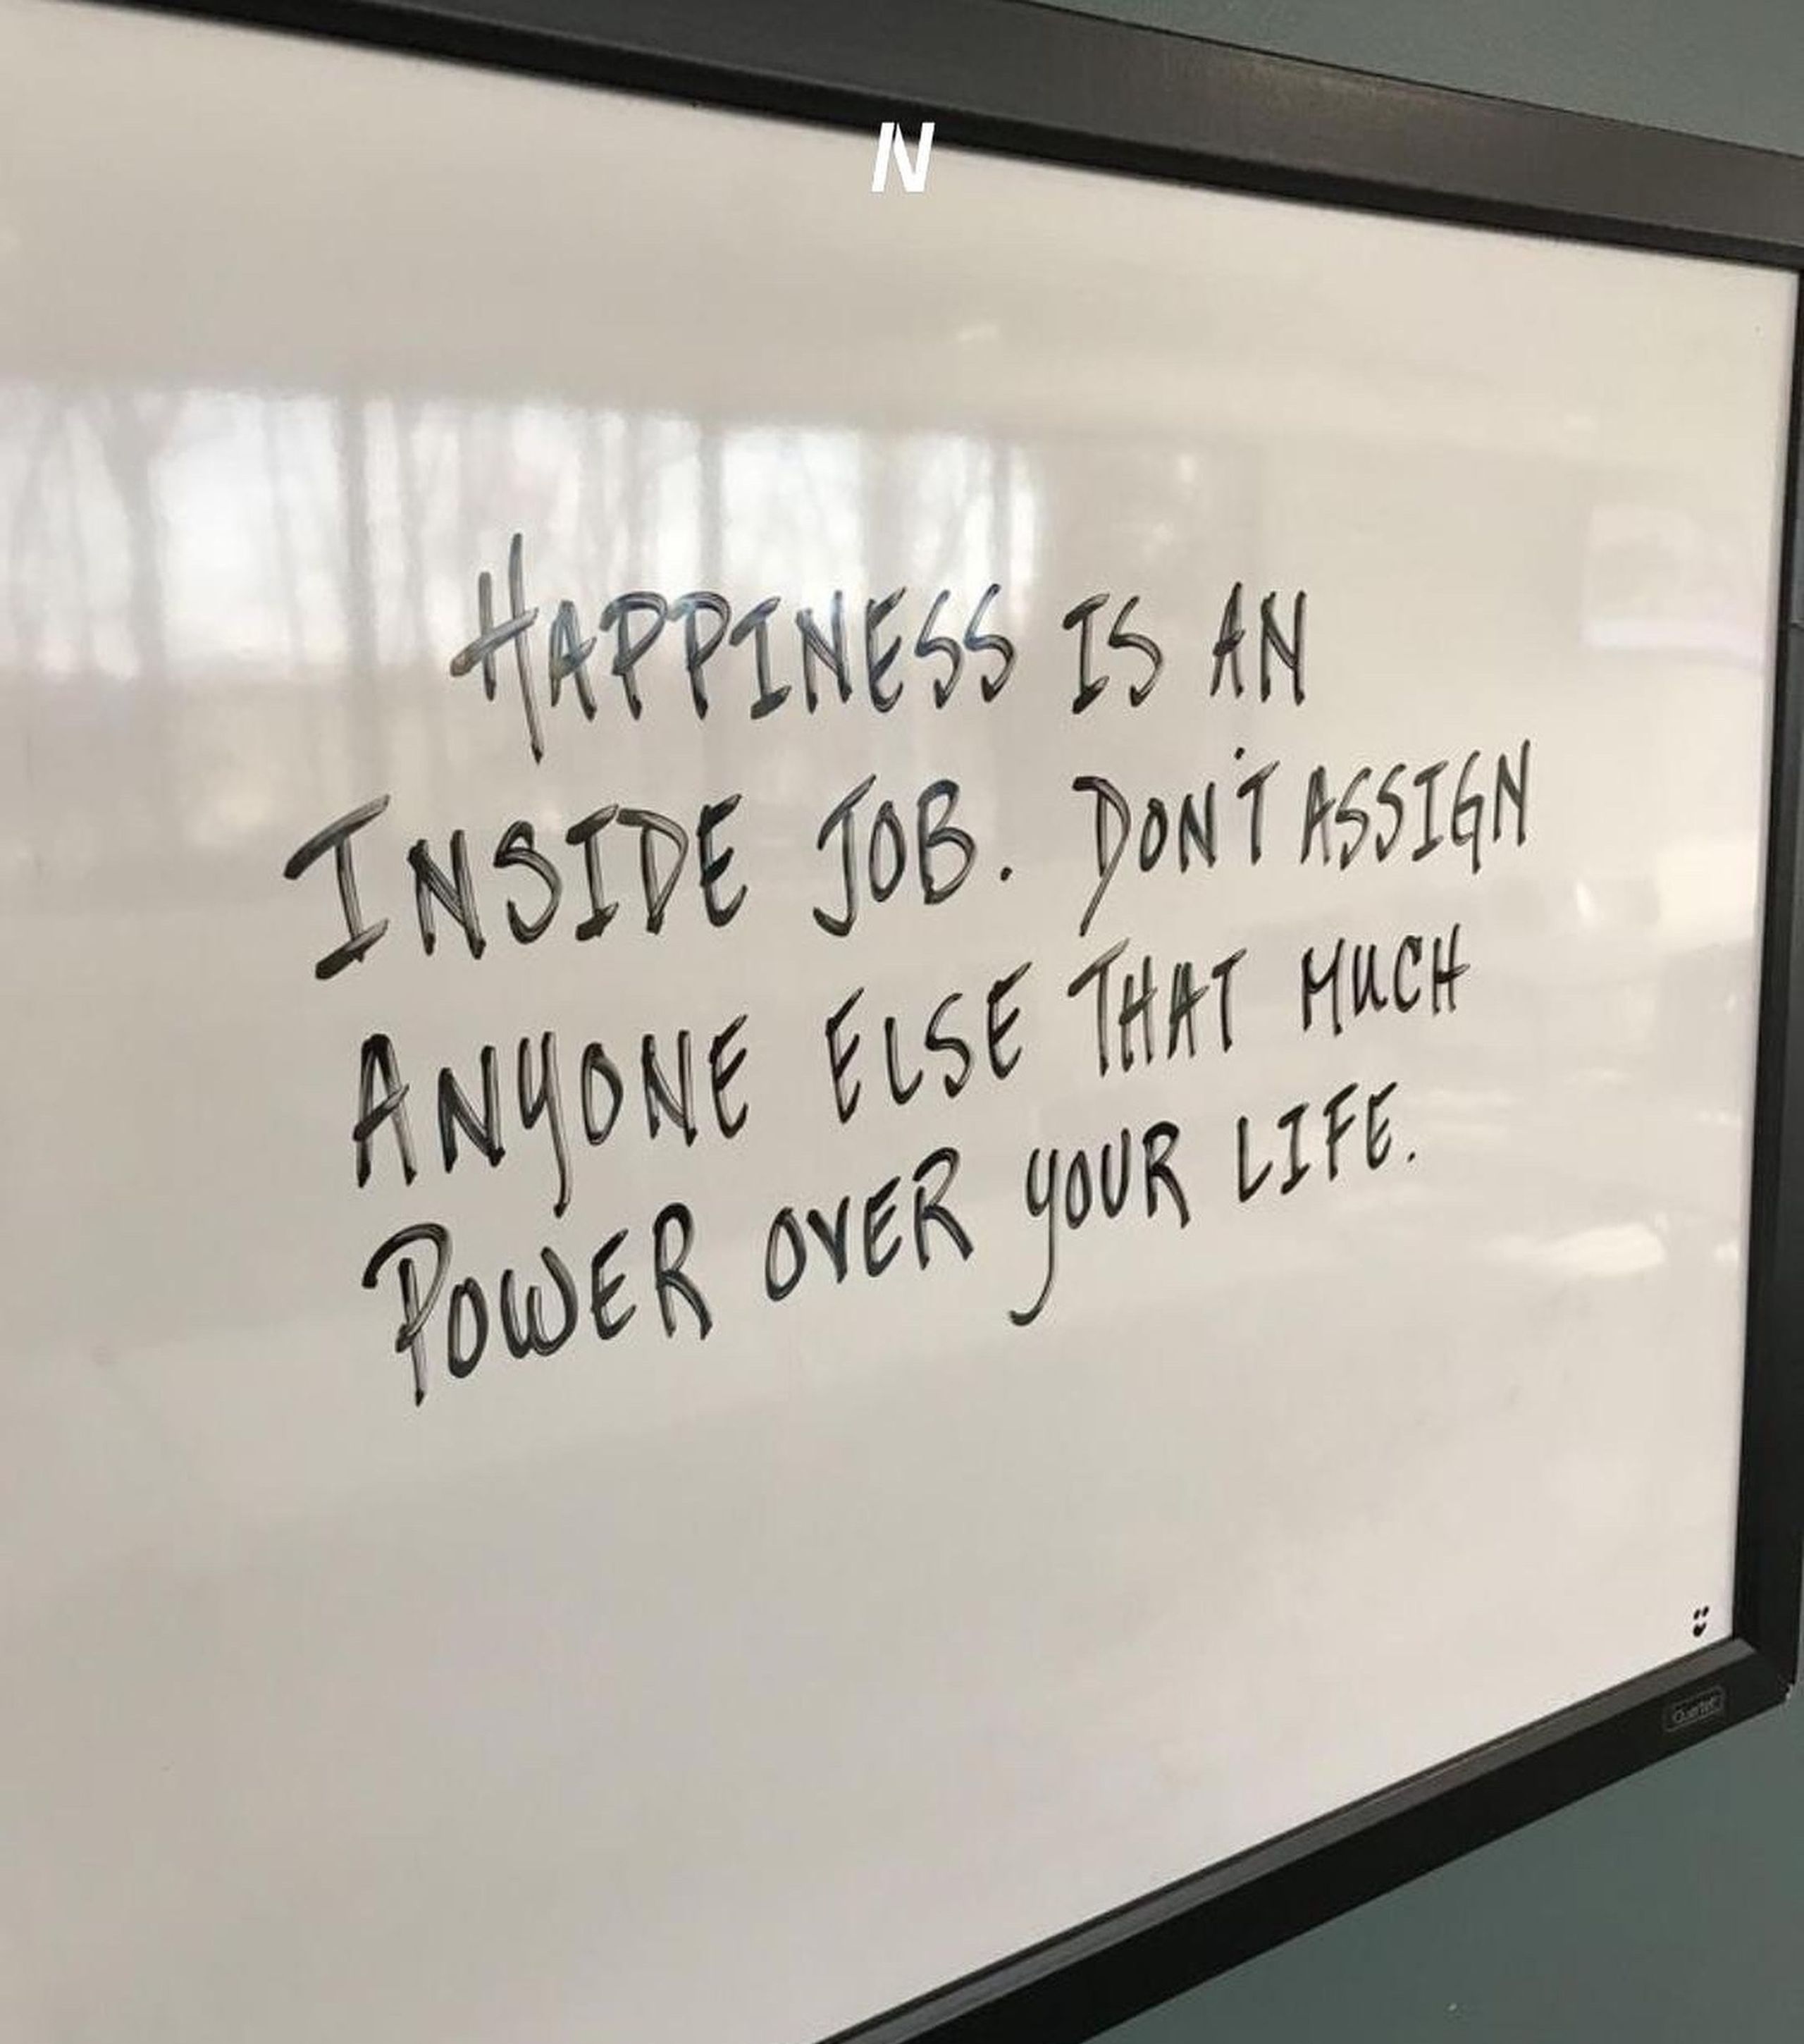 N
HAPPINESS IS AN
INSIDE JOB. DON'T ASSIGN
ANYONE ELSE THAT MUCH
POWER OVER YOUR LIFE.
Quartet